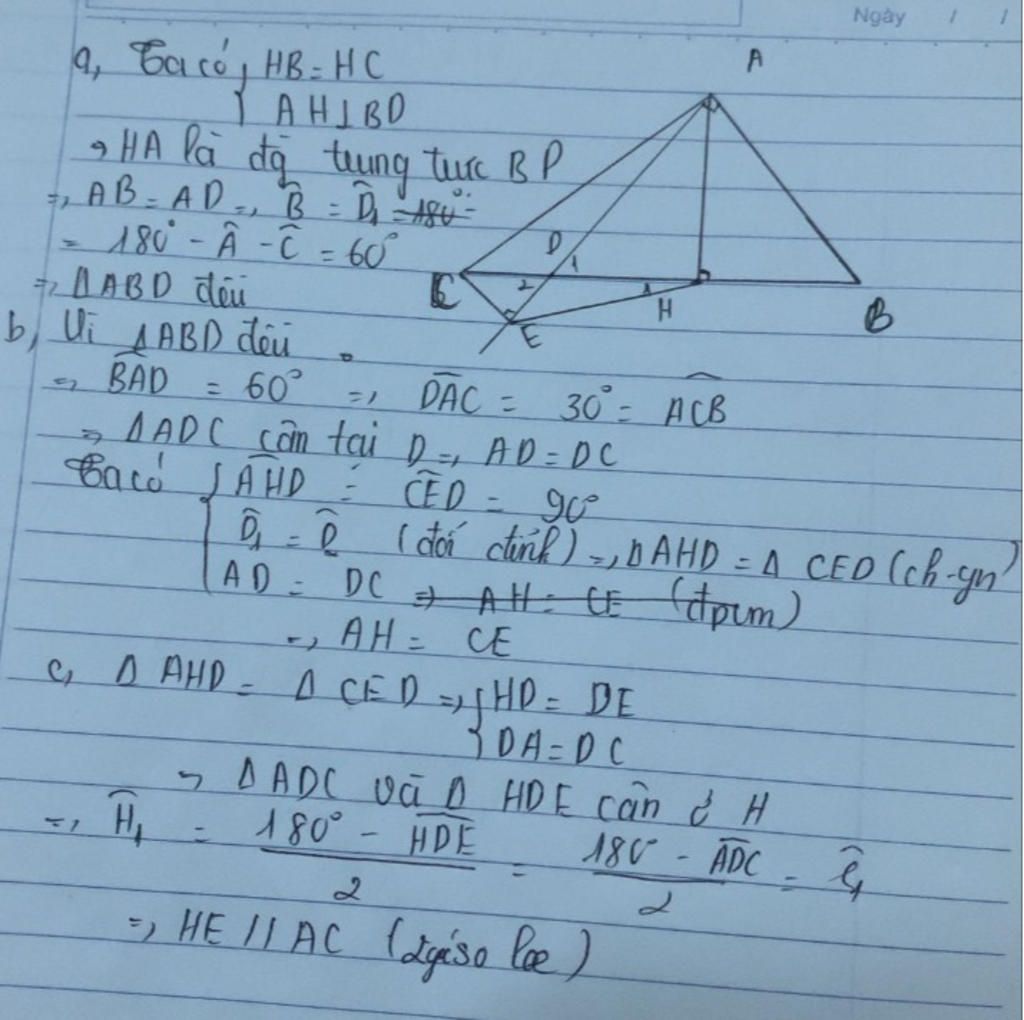 Ngày / /
a, Ta có { HB = HC
AH ⊥ BD
→ HA là đg trung trực BD
=> AB = AD => B̂ = D̂₁ = 180° -
= 180° - Â - Ĉ = 60°
=> ΔABD đều
b, Vì ΔABD đều
=> BAD = 60° => DAC = 30° = ACB
=> ΔADC cân tại D => AD = DC
Ta có { AHD = CED = 90°
D̂₁ = D̂ (đối đỉnh) => ΔAHD = Δ CED (ch-gn)
AD = DC => AH = CE (đpcm)
=> AH = CE
c, Δ AHD = Δ CED => { HD = DE
DA = DC
=> Δ ADC và Δ HDE cân ở H
=> Ĥ₁ = (180° - HDE)/2 = (180 - ADC)/2 = Ĉ₁
=> HE // AC (2 góc so le)
A
D
1
2
1
C
H
B
E